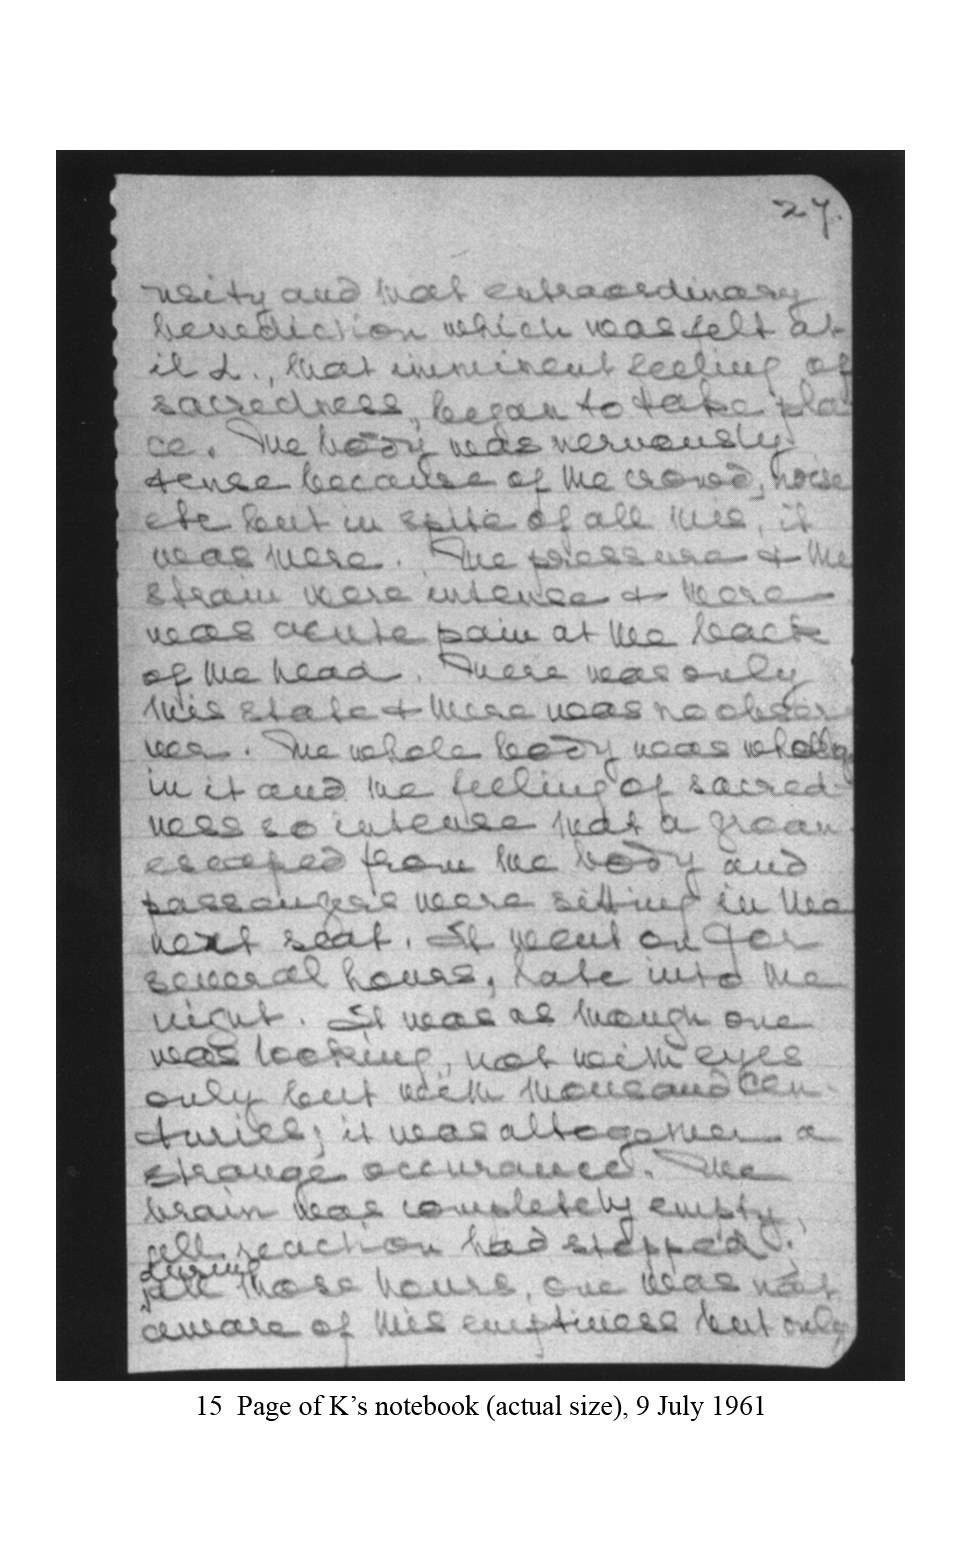 27.
nsity and that extraordinary
benediction which was felt at
il L., that imminent feeling of
sacredness, began to take pla
ce. The body was nervously
tense because of the crowd, noise
etc but in spite of all this, it
was there. The pressure & the
strain were intense & there
was acute pain at the back
of the head. There was only
this state & there was no obser
ver. The whole body was wholly
in it and the feeling of sacred-
ness so intense that a groan
escaped from the body and
passengers were sitting in the
next seat. It went on for
several hours, late into the
night. It was as though one
was looking, not with eyes
only but with thousand cen-
turies; it was altogether a
strange occurance. The
brain was completely empty,
all reaction had stopped;
during
all those hours, one was not
aware of this emptiness but only
15 Page of K's notebook (actual size), 9 July 1961